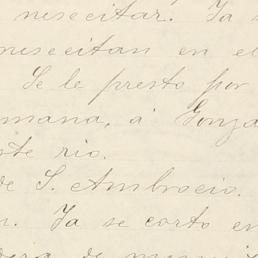 nisecitar. Ya s
nisecitan en el
Se le presto por
emana, á Gonza
ste rio.
de S. Ambrocio.
n. Ya se corto en